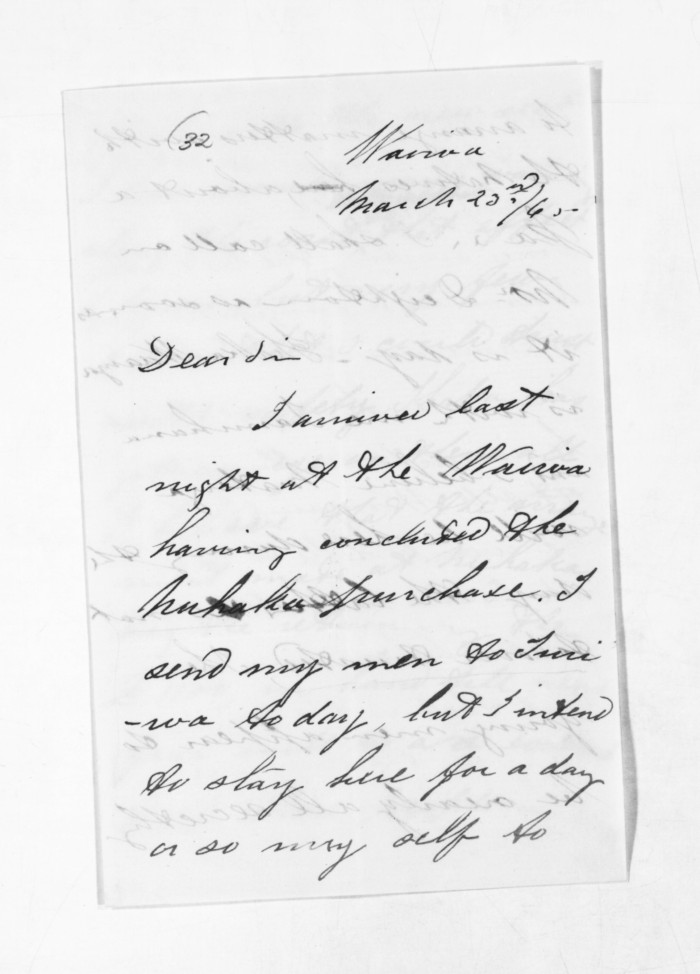 (32
Wairoa
March 23rd/65-
Dear Sir
I arrived last
night at the Wairoa
having concluded the
Nuhaka purchase. I
send my men to Turi
-roa to day, but I intend
to stay here for a day
or so my self to